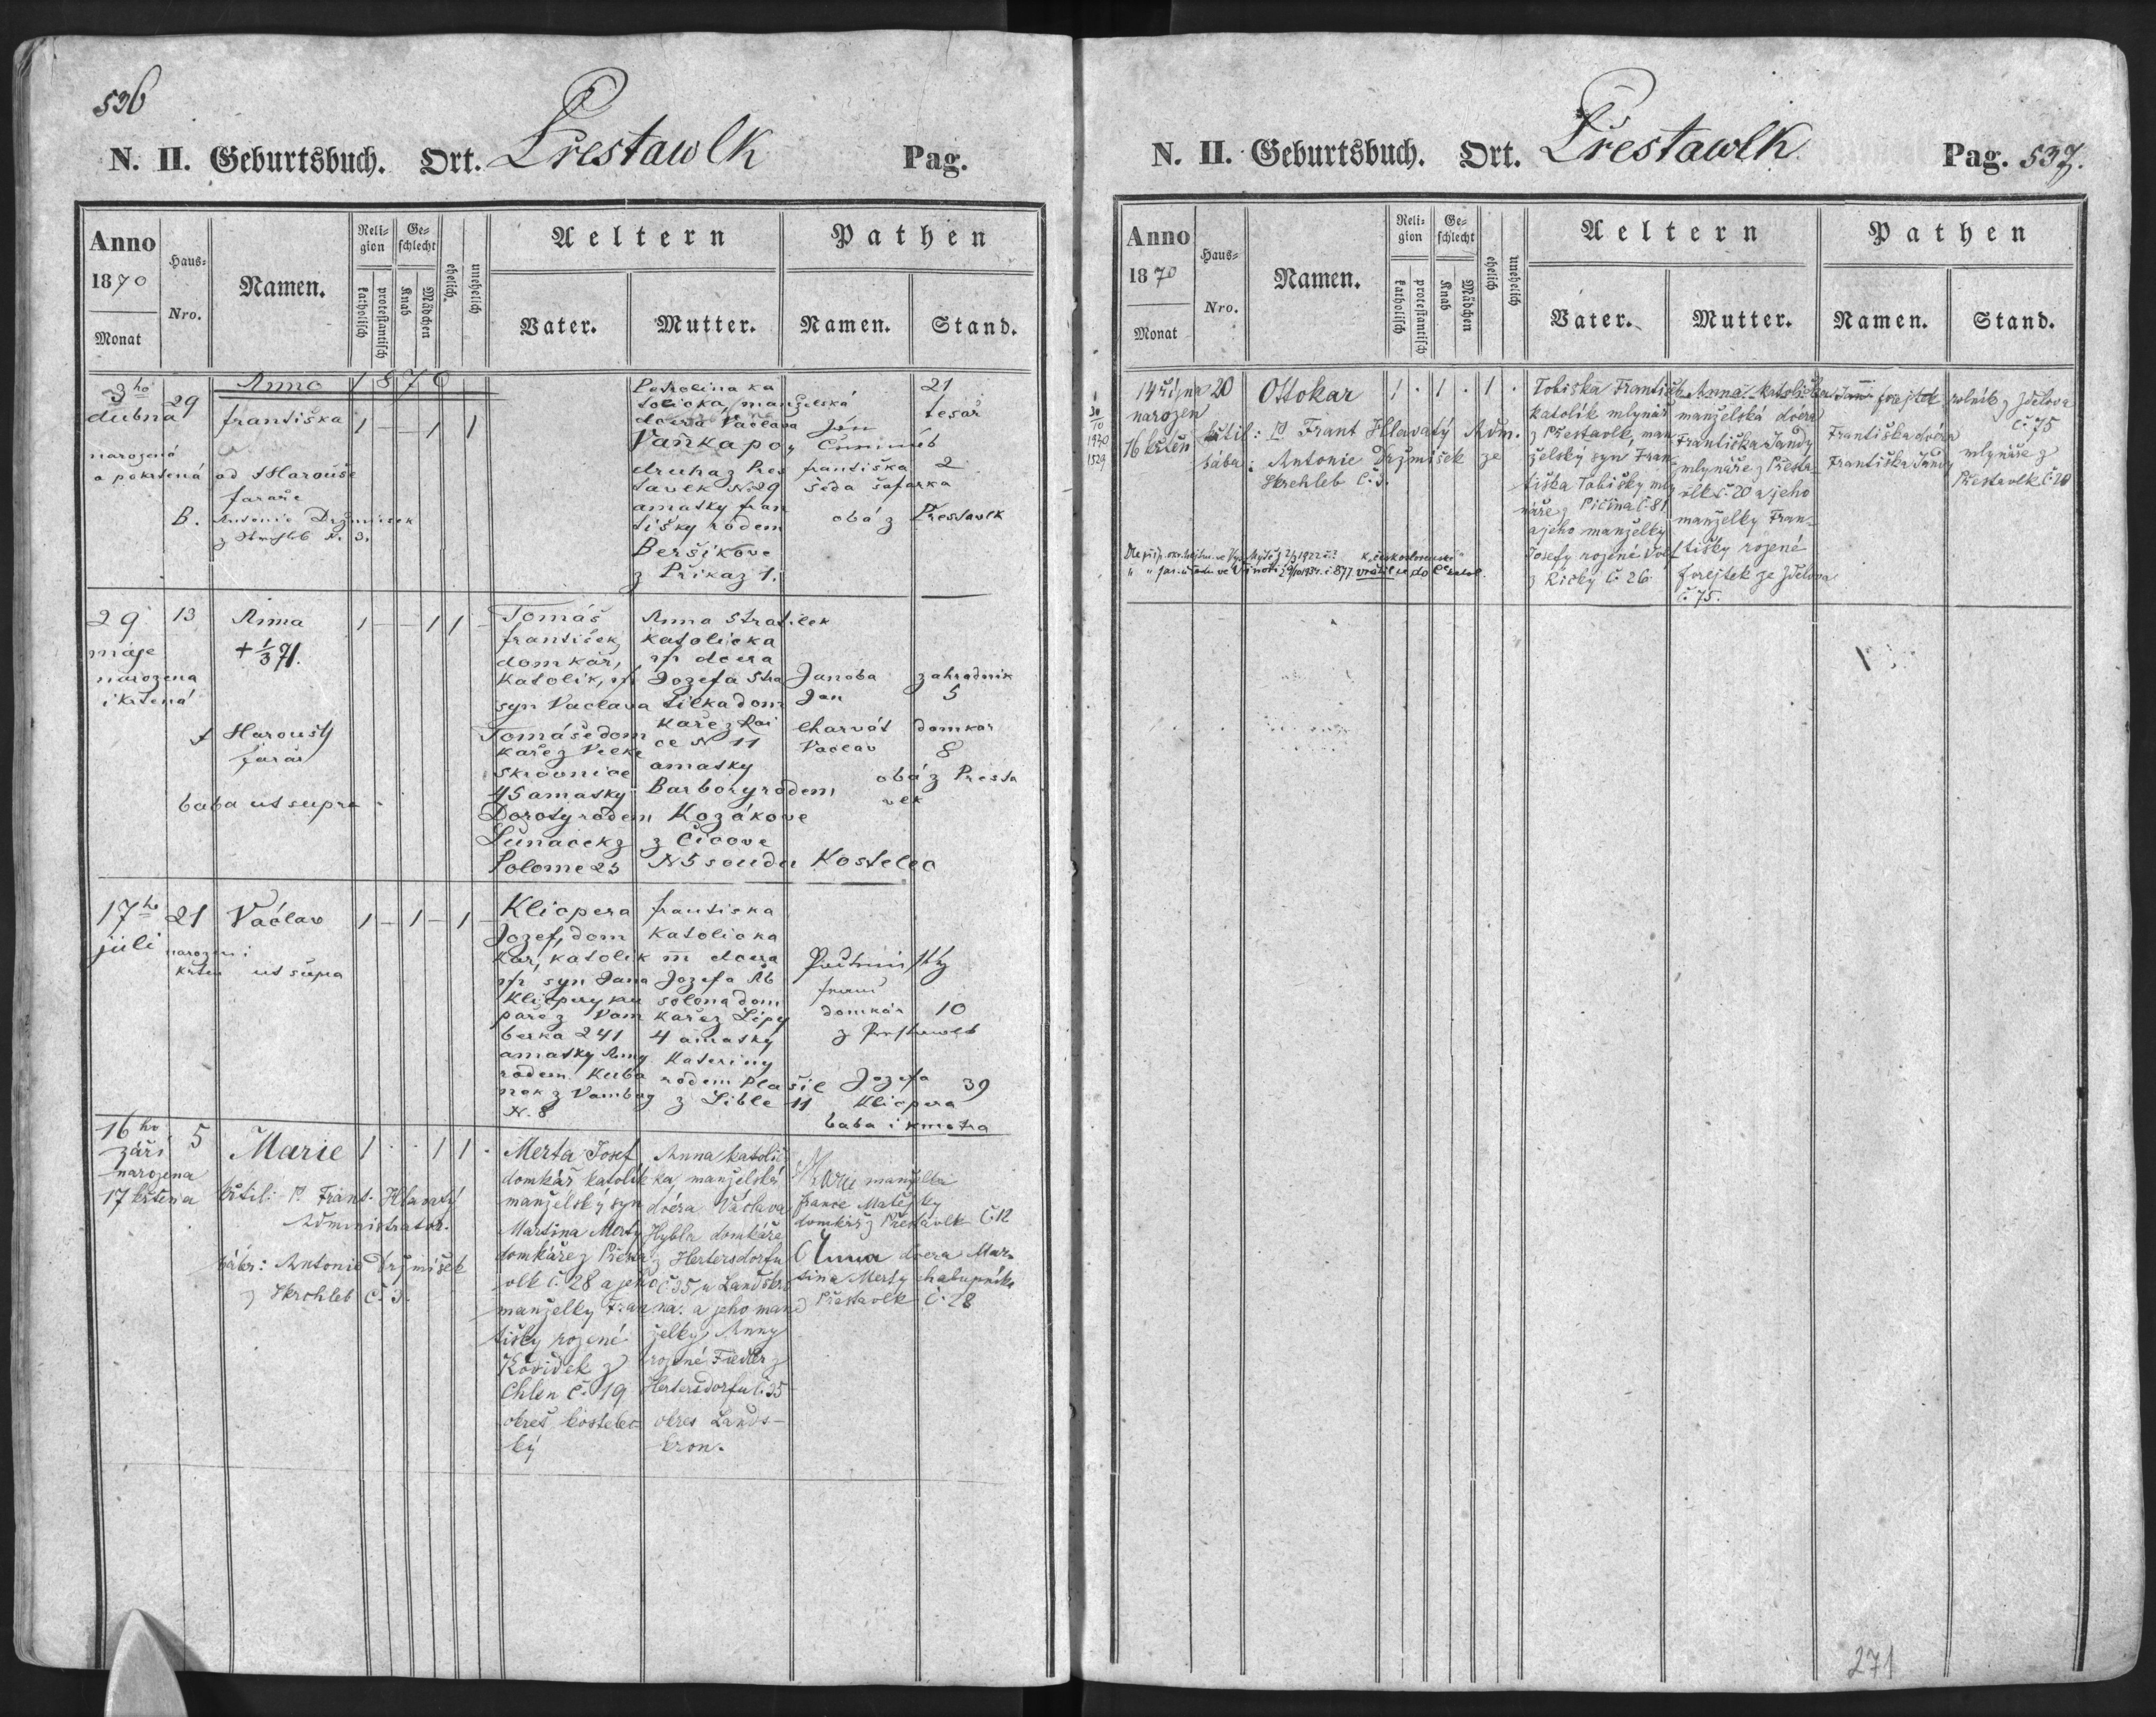 536
N. II. Geburtsbuch. Ort. Přestawlk Pag.
Anno
1870
Monat
Haus=
Nro.
Namen.
Reli=
gion
katholisch
protestantisch
Ge=
schlecht
Knab
Mädchen
ehelich.
unehelich
Aeltern
Vater.
Mutter.
Pathen
Namen.
Stand.
Anno 1870
3ho
dubna
29
františka
1 — — 1 1
narozená
a pokrtená od f Harouše
faraře
B. Antonie Držmisek
N. 3.
Petrolina ka
tolicka manželská
dcera Václava
Vaňka po
druha z Pres
tavlk No 29
a matky fran
tišky rodem
Beršikove
z Přikaz 1.
Jan
františka
Šeda šafarka
oba z Prestavlk
21
tesař
2
29
maje
narozena
i krtená
13
Anna
+ 1/3 71.
1 — — 1 1 —
f Haroušy
farar
baba ut supra
Tomáš
františek
domkár,
katolik, m
syn Vaclava
Tomáše dom
kaře z Velke
Skrovnice
45 a matky
Doroty rodem
Polome 23
Anna Stratilek
katolicka
m dcera
Jozefa Stra
tilka dom
kaře z Rai
ce N 11
a matky
Barbory rodem
Kozákove
z Čicove
N 5 soudu Kostelec
Janoba
Jan
charvát
Vaclav
oba z Presta
vlk
zahradnik
5
domkar
8
17ho
juli
21
Václav
1 — 1 — 1 —
narozen i
krten ut supra
Klicpera
Jozef, dom
kar, katolik
m syn Jana
Klicpery ku
paře z Vam
berka 241
a matky Anny
rodem Kuba
nek z Vamberg
N. 8
frantiska
katolicka
m dcera
Jozefa Ab
solona dom
kaře z Lipy
4 a matky
Kateriny
rodem Plašil
z Lible 11
domkár 10
Jozefa 39
Klicpera
baba i kmotra
16ho
září
narozena
17 křtena
5
Marie
1 . . 1 1 .
křtil: P. Frant. Hlavatý
Administrator.
bába: Antonie Držmíšek
z Skrchleb č. 3.
Merta Josef
domkář katolík
manželský syn
Martina Merty
domkáře z Přesta
vlk č. 28 a jeho
manželky Fran
tišky rozené
Kovídek z
Chlen č. 19
okres kostelec
ký
Anna katolic
ka, manželská
dcera Václava
Hybla domkáře
z Hertersdorfu
č. 35 u Landskro
na a jeho man
želky Anny
rozené Fiedler z
Hertersdorfu č. 35
okres Lands-
kron.
Marie manželka
France Matějky
domkáře z Přestavlk č. 12
Anna dcera Mar-
tina Merty chalupníka
z Přestavlk č. 28
N. II. Geburtsbuch. Ort. Přestawlk. Pag. 537.
Anno
1870
Monat
Haus=
Nro.
Namen.
Reli=
gion
katholisch
protestantisch
Ge=
schlecht
Knab
Mädchen
ehelich
unehelich
Aeltern
Vater.
Mutter.
Pathen
Namen.
Stand.
14 října
narozen
16 křtěn
20
Ottokar
1 . 1 . 1 .
křtil: P. Frant Hlavatý Adm.
bába: Antonie Držmíšek ze
Skrchleb č. 3.
30
10
1930
1529
Tobiška František
katolík mlynář
z Přestavlk, man
želský syn Fran
tiška Tobišky mly
náře z Pičína č. 81
a jeho manželky
Josefy rozené
z Říčky č. 26.
Anna katolička
manželská dcera
Františka Jandy
mlynáře z Přesta
vlk č. 20 a jeho
manželky Fran-
tišky rozené
forejtek ze Zdelova
č. 75.
Jan forejtek
Františka dcera
Františka Jandy
rolník z Zdelova
č. 75
mlynáře z
Přestavlk č. 20
vrátil se do c. katol.
271